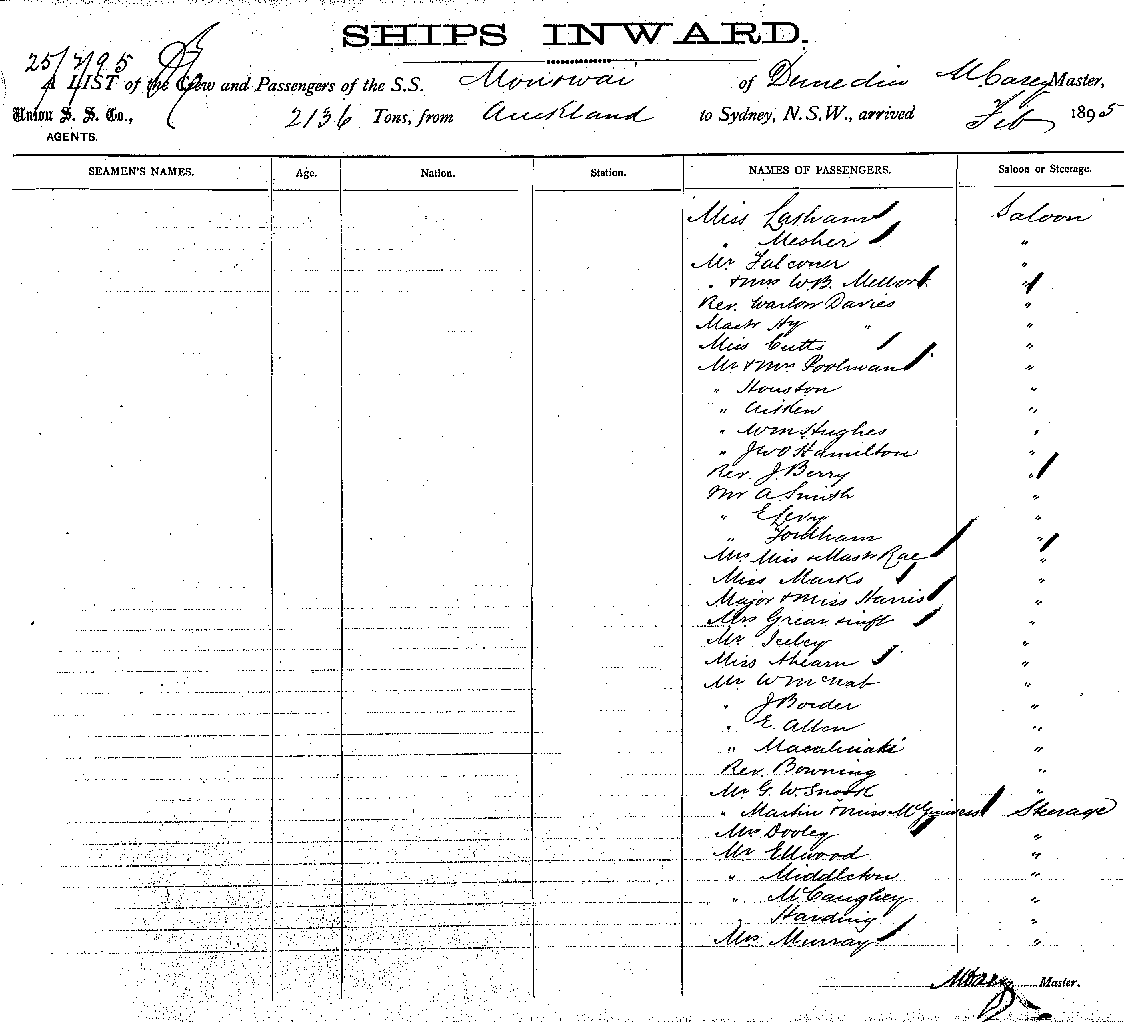 SHIPS INWARD.
25/2/95
A LIST of the Crew and Passengers of the S.S. Monowai of Dunedin M Carey Master,
Union S. S. Co., 2136 Tons, from Auckland to Sydney, N.S.W., arrived Feb 1895
AGENTS.
SEAMEN'S NAMES. Age. Nation. Station. NAMES OF PASSENGERS. Saloon or Steerage.
Miss Lasham Saloon
" Mesher "
Mr Falconer "
" & Mrs W.B. Mellor "
Rev. Warlow Davies "
Mastr Hy " "
Miss Cutts "
Mr & Mrs Poolman "
" Houston "
" Aitken "
" Wm Hughes "
" J W O Hamilton "
Rev. J. Berry "
Mr A. Smith "
" E Levy "
" Fordham "
Mrs Miss & Mastr Rae "
Miss Marks "
Major & Miss Harris "
Mrs Grear "
Mr "
Miss Ahearn "
Mr W McNab "
" J Border "
" E. Allen "
" "
Rev. Bowning "
Mr G. W. Snook "
" Martin & Miss McGuiness Steerage
Mrs Dooley "
Mr Ellwood "
" Middleton "
" McCaughey "
Harding "
Mrs Murray "
M Carey Master.